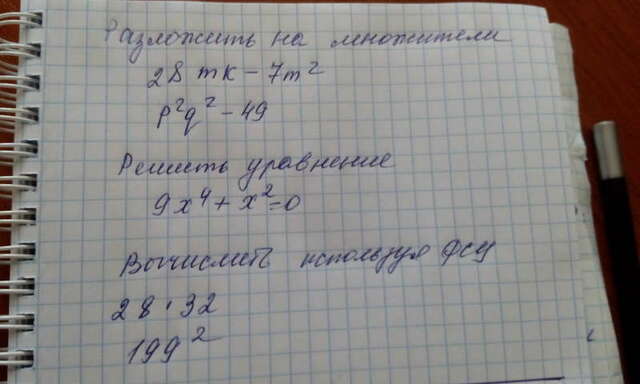 Разложить на множители
28mk-7m²
p²q²-49
Решить уравнение
9x⁴+x²=0
Вычислить используя ФСУ
28·32
199²